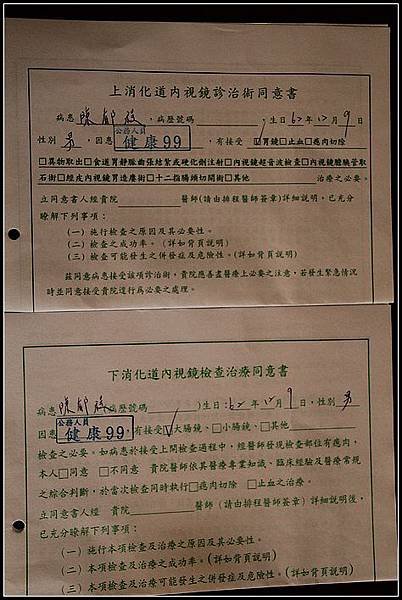 上消化道內視鏡診治術同意書
病患 陳 ，病歷號碼 ，生日 62 年 12 月 9 日
性別 男 ，因患 公務人員 健康99 ，有接受 ☑胃鏡□止血□瘜肉切除
□異物取出□食道胃靜脈曲張結紮或硬化劑注射□內視鏡超音波檢查□內視鏡膽胰管取
石術□經皮內視鏡胃造廔術□十二指腸頭切開術□其他 治療之必要。
立同意書人經貴院 醫師(請由排程醫師簽章)詳細說明，已充分
瞭解下列事項：
(一) 施行檢查之原因及其必要性。
(二) 檢查之成功率。(詳如背頁說明)
(三) 檢查可能發生之併發症及危險性。(詳如背頁說明)
茲同意病患接受該項診治術，貴院應善盡醫療上必要之注意，若發生緊急情況
時並同意接受貴院進行為必要之處理。
下消化道內視鏡檢查治療同意書
病患 陳 病歷號碼 )生日：62 年 12 月 9 日，性別 男
因患 公務人員 健康99 有接受☑大腸鏡、□小腸鏡，□其他
檢查之必要。如病患於接受上開檢查過程中，經醫師發現檢查部位有瘜肉，
本人□同意 □不同意 貴院醫師依其醫療專業知識、臨床經驗及醫療常規
之綜合判斷，於當次檢查同時執行□瘜肉切除 □止血之治療。
立同意書人經 貴院 醫師 (請由排程醫師簽章) 詳細說明後，
已充分瞭解下列事項：
(一) 施行本項檢查及治療之原因及其必要性。
(二) 本項檢查及治療之成功率。(詳如背頁說明)
(三) 本項檢查及治療可能發生之併發症及危險性。(詳如背頁說明)